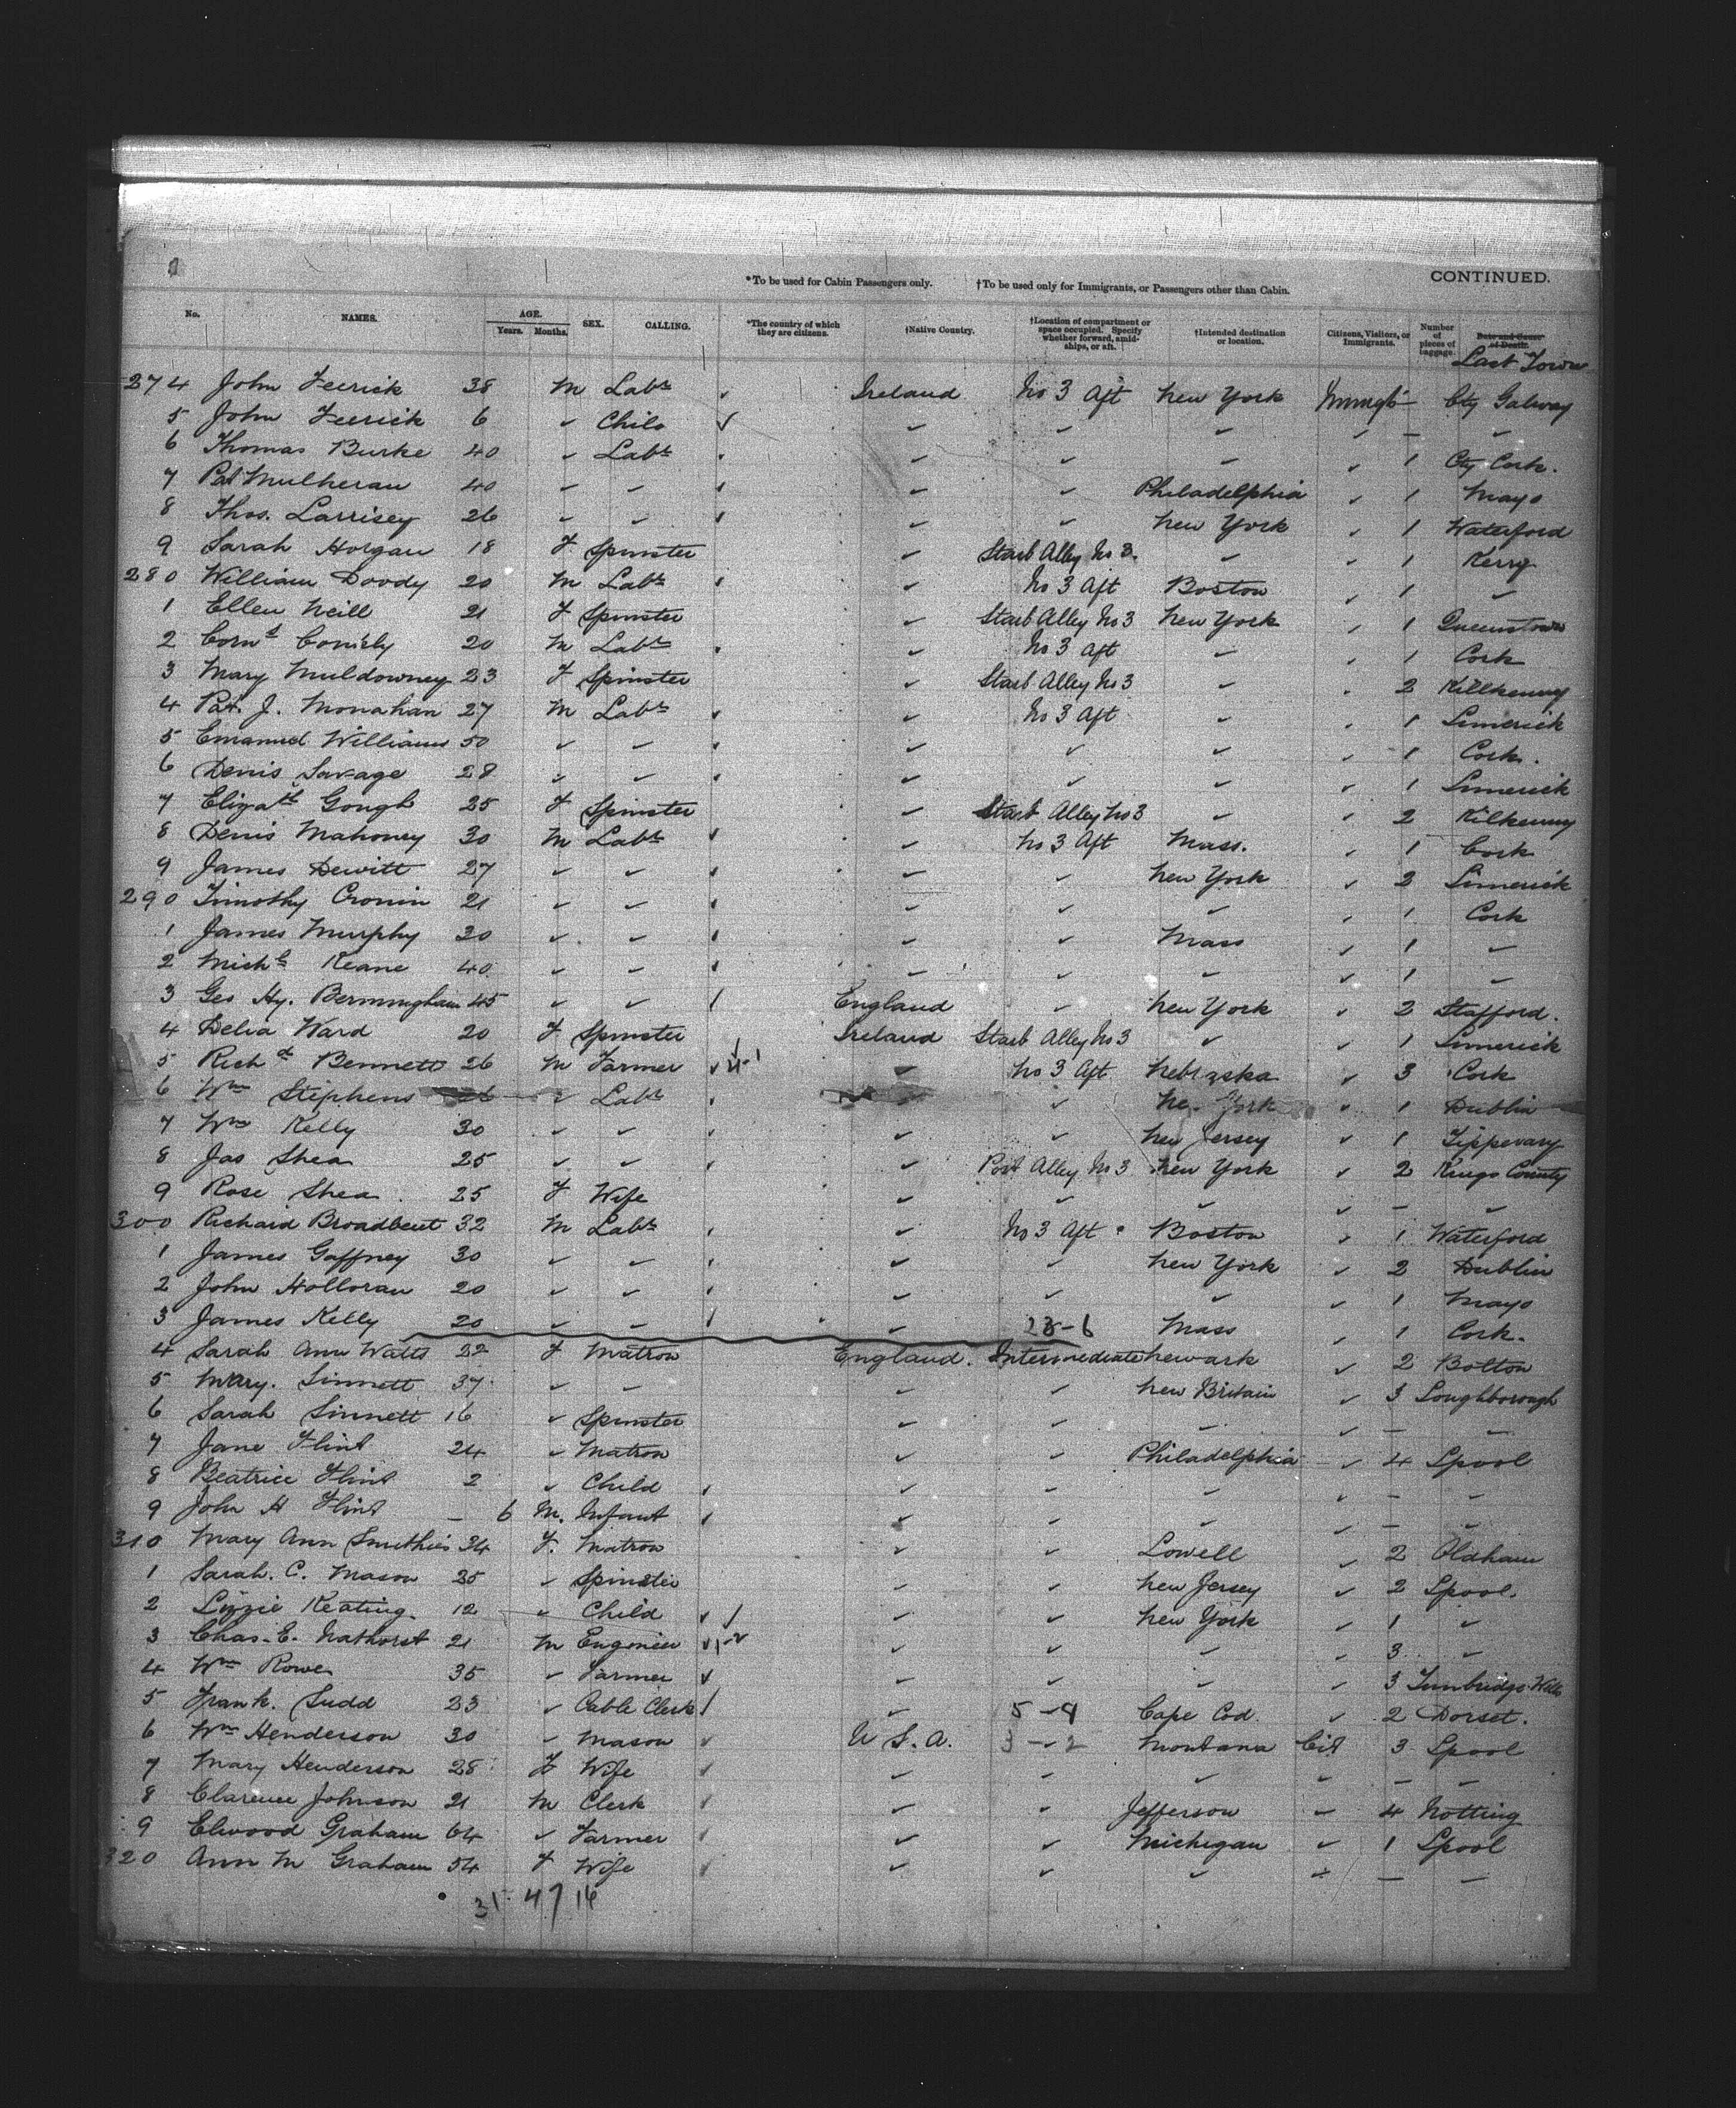 CONTINUED.
*To be used for Cabin Passengers only. †To be used only for Immigrants, or Passengers other than Cabin.
No. NAMES. AGE. Years. Months. SEX. CALLING. *The country of which they are citizens. †Native Country. †Location of compartment or space occupied. Specify whether forward, amidships, or aft. †Intended destination or location. Citizens, Visitors, or Immigrants. Number of pieces of luggage. Date and Cause of Death.
Last Town
274 John Feerick 38 M Labr Ireland No 3 Aft New York Immgt Cty Galway
5 John Feerick 6 ✓ Child ✓ ✓ ✓ ✓ ✓ — ✓
6 Thomas Burke 40 ✓ Labr ✓ ✓ ✓ ✓ 1 Cty Cork.
7 Pat Mulheran 40 ✓ ✓ ✓ ✓ Philadelphia ✓ 1 Mayo
8 Thos. Larrisey 26 ✓ ✓ ✓ ✓ New York ✓ 1 Waterford
9 Sarah Horgan 18 F Spinster ✓ Starb Alley No 3 ✓ ✓ 1 Kerry
280 William Doody 20 M Labr ✓ No 3 Aft Boston ✓ 1 ✓
1 Ellen Neill 21 F Spinster ✓ Starb Alley No 3 New York ✓ 1 Queenstown
2 Corns 20 M Labr ✓ No 3 Aft ✓ ✓ 1 Cork
3 Mary Muldowney 23 F Spinster ✓ Starb Alley No 3 ✓ ✓ 2 Killkenny
4 Pat. J. Monahan 27 M Labr ✓ No 3 Aft ✓ ✓ 1 Limerick
5 Emanuel Williams 50 ✓ ✓ ✓ ✓ ✓ ✓ 1 Cork.
6 Denis Savage 28 ✓ ✓ ✓ ✓ ✓ ✓ 1 Limerick
7 Elizath Gough 25 F Spinster ✓ Starb Alley No 3 ✓ ✓ 2 Kilkenny
8 Denis Mahoney 30 M Labr ✓ No 3 Aft Mass. ✓ 1 Cork
9 James Dewitt 27 ✓ ✓ ✓ ✓ New York ✓ 2 Limerick
290 Timothy Cronin 21 ✓ ✓ ✓ ✓ ✓ ✓ 1 Cork
1 James Murphy 30 ✓ ✓ ✓ ✓ Mass ✓ 1 ✓
2 Michl Keane 40 ✓ ✓ ✓ ✓ ✓ ✓ 1 ✓
3 Geo Hy. Bermingham 45 ✓ ✓ England ✓ New York ✓ 2 Stafford.
4 Delia Ward 20 F Spinster Ireland Starb Alley No 3 ✓ ✓ 1 Limerick
5 Richd Bennett 26 M Farmer ✓ ✓ No 3 Aft Nebraska ✓ 3 Cork
6 Wm Stephens 26 ✓ Labr ✓ New York ✓ 1 Dublin
7 Wm Kelly 30 ✓ ✓ ✓ ✓ New Jersey ✓ 1 Tipperary
8 Jas Shea 25 ✓ ✓ ✓ Port Alley No 3 New York ✓ 2 Kings County
9 Rose Shea 25 F Wife ✓ ✓ ✓ ✓ — ✓
300 Richard Broadbent 32 M Labr ✓ No 3 Aft Boston ✓ 1 Waterford
1 James Gaffney 30 ✓ ✓ ✓ ✓ New York ✓ 2 Dublin
2 John Holloran 20 ✓ ✓ ✓ ✓ ✓ ✓ 1 Mayo
3 James Kelly 20 ✓ ✓ ✓ 23-6 Mass ✓ 1 Cork.
4 Sarah Ann Watts 22 F Matron England. Intermediate Newark ✓ 2 Bolton
5 Mary. Sinnett 37 ✓ ✓ ✓ ✓ New Britain ✓ 3 Loughborough
6 Sarah Sinnett 16 ✓ Spinster ✓ ✓ ✓ ✓ — ✓
7 Jane Flint 24 ✓ Matron ✓ ✓ Philadelphia ✓ 4 Lpool
8 Beatrice Flint 2 ✓ Child ✓ ✓ ✓ ✓ — ✓
9 John H Flint — 6 M. Infant ✓ ✓ ✓ ✓ — ✓
310 Mary Ann Smithies 34 F. Matron ✓ ✓ Lowell ✓ 2 Oldham
1 Sarah. C. Mason 25 ✓ Spinster ✓ ✓ New Jersey ✓ 2 Lpool.
2 Lizzie Keating. 12 ✓ Child ✓ ✓ ✓ New York ✓ 1 ✓
3 Chas. E. Nathorst 21 M Engineer ✓ ✓ ✓ ✓ ✓ 3 ✓
4 Wm Rowe 35 ✓ Farmer ✓ ✓ ✓ ✓ ✓ 3 Tunbridge Wells
5 Frank. Sudd 23 ✓ Cable Clerk ✓ 5-9 Cape Cod. ✓ 2 Dorset.
6 Wm Henderson 30 ✓ Mason ✓ U.S.A. 3-2 Montana Cit 3 Lpool
7 Mary Henderson 28 F Wife ✓ ✓ ✓ ✓ ✓ — —
8 Clarence Johnson 21 M Clerk ✓ ✓ ✓ Jefferson ✓ 4 Notting
9 Elwood Graham 64 ✓ Farmer ✓ ✓ ✓ Michigan ✓ 1 Lpool
320 Ann M Graham 54 F Wife ✓ ✓ ✓ ✓ ✓ — —
31 47 16